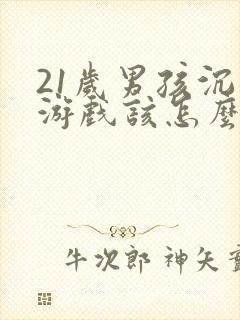 21歲男孩沉
游戲該怎麼
牛次郎 神矢